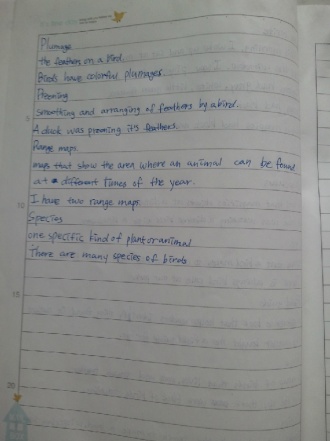 Plumage
the feathers on a bird.
Birds have colorful plumages.
Preening
smoothing and arranging of feathers by a bird.
A duck was preening its feathers.
Range maps
maps that show the area where an animal can be found
at different times of the year.
I have two range maps.
Species
one specific kind of plant or animal
There are many species of birds
5
10
15
20